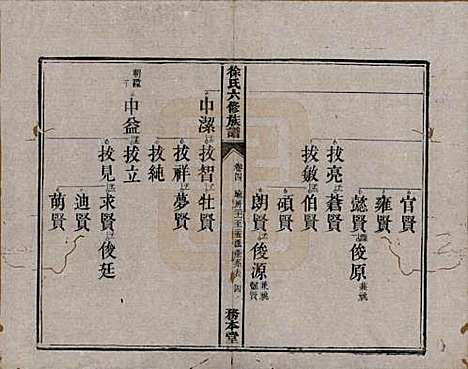 官賢
雍賢
懿賢 俊原 兼祧
拔亮 蒼賢
拔敏 伯賢
碩賢
朗賢 俊源 兼祧
徐氏六修族譜
卷四
務本堂
中潔 拔智 牡賢
拔祥 夢賢
拔純
朝
中益 拔立
拔見 求賢 俊廷
迪賢
萌賢